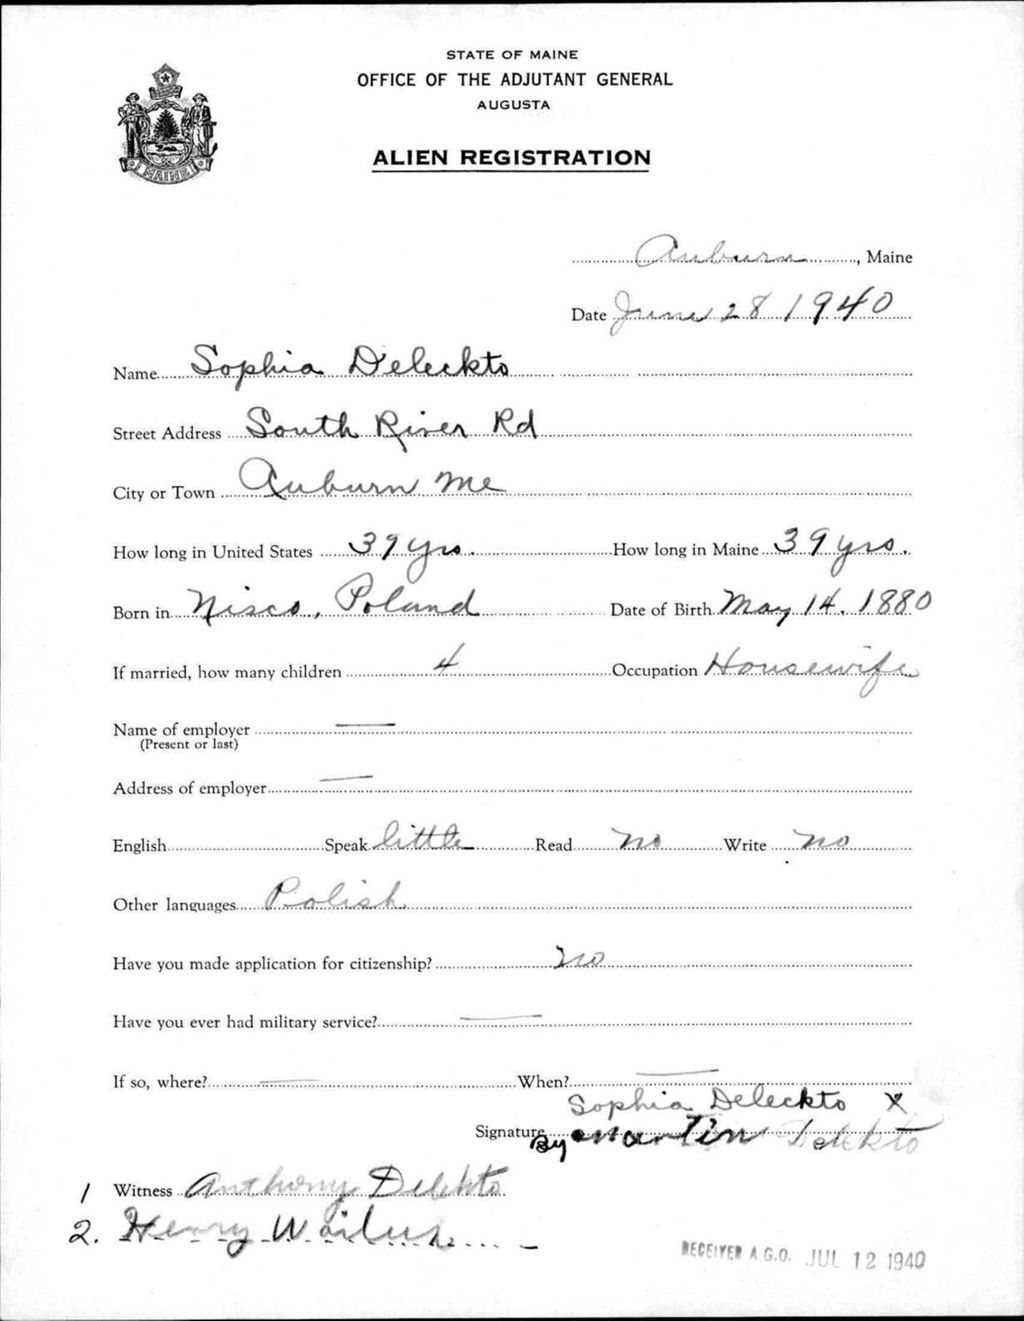 STATE OF MAINE
OFFICE OF THE ADJUTANT GENERAL
AUGUSTA
ALIEN REGISTRATION
MAINE
Auburn, Maine
Date June 28 1940
Name Sophia Deleckto
Street Address South River Rd
City or Town Auburn Me
How long in United States 39 yrs. How long in Maine 39 yrs.
Born in Nisco, Poland Date of Birth May 14. 1880
If married, how many children 4 Occupation Housewife
Name of employer
(Present or last)
Address of employer
English Speak little Read no Write no
Other languages Polish
Have you made application for citizenship? no
Have you ever had military service?
If so, where? When?
Sophia Deleckto X
Signature By Martin Delekto
1 Witness Anthony Delekto
2. Henry
RECEIVED A.G.O. JUL 12 1940